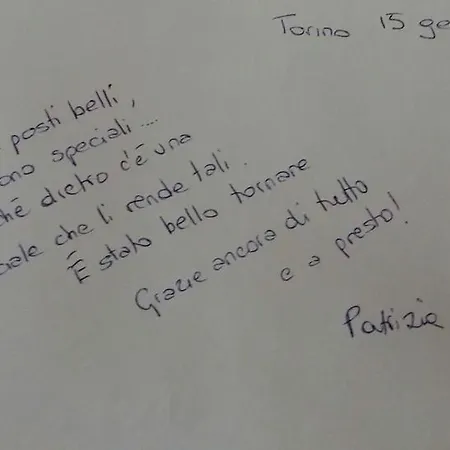 Torino 15 ge
posti belli,
ono speciali....
ché dietro c'é una
ciale che li rende tali.
É stato bello tornare
Grazie ancora di tutto
e a presto!
Patrizia